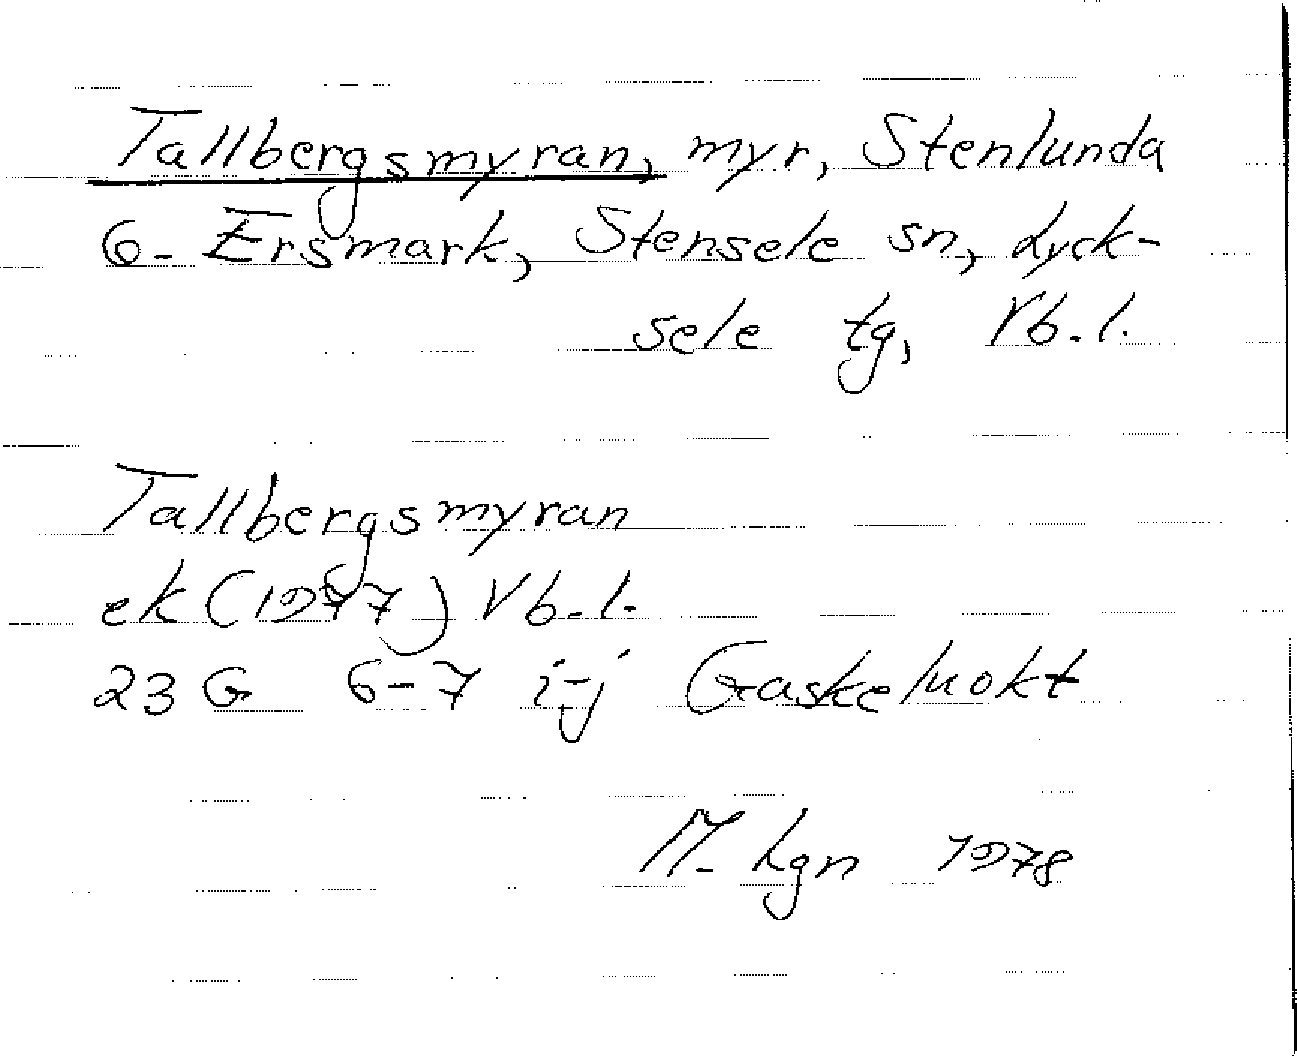 Tallbergsmyran, myr, Stenlunda
o. Ersmark, Stensele sn, Lyck-
sele tg, Vb.l.
Tallbergsmyran
ek (1977) Vb.l.
23 G 6-7 i-j Gaskeluokt
M. Lgn 1978